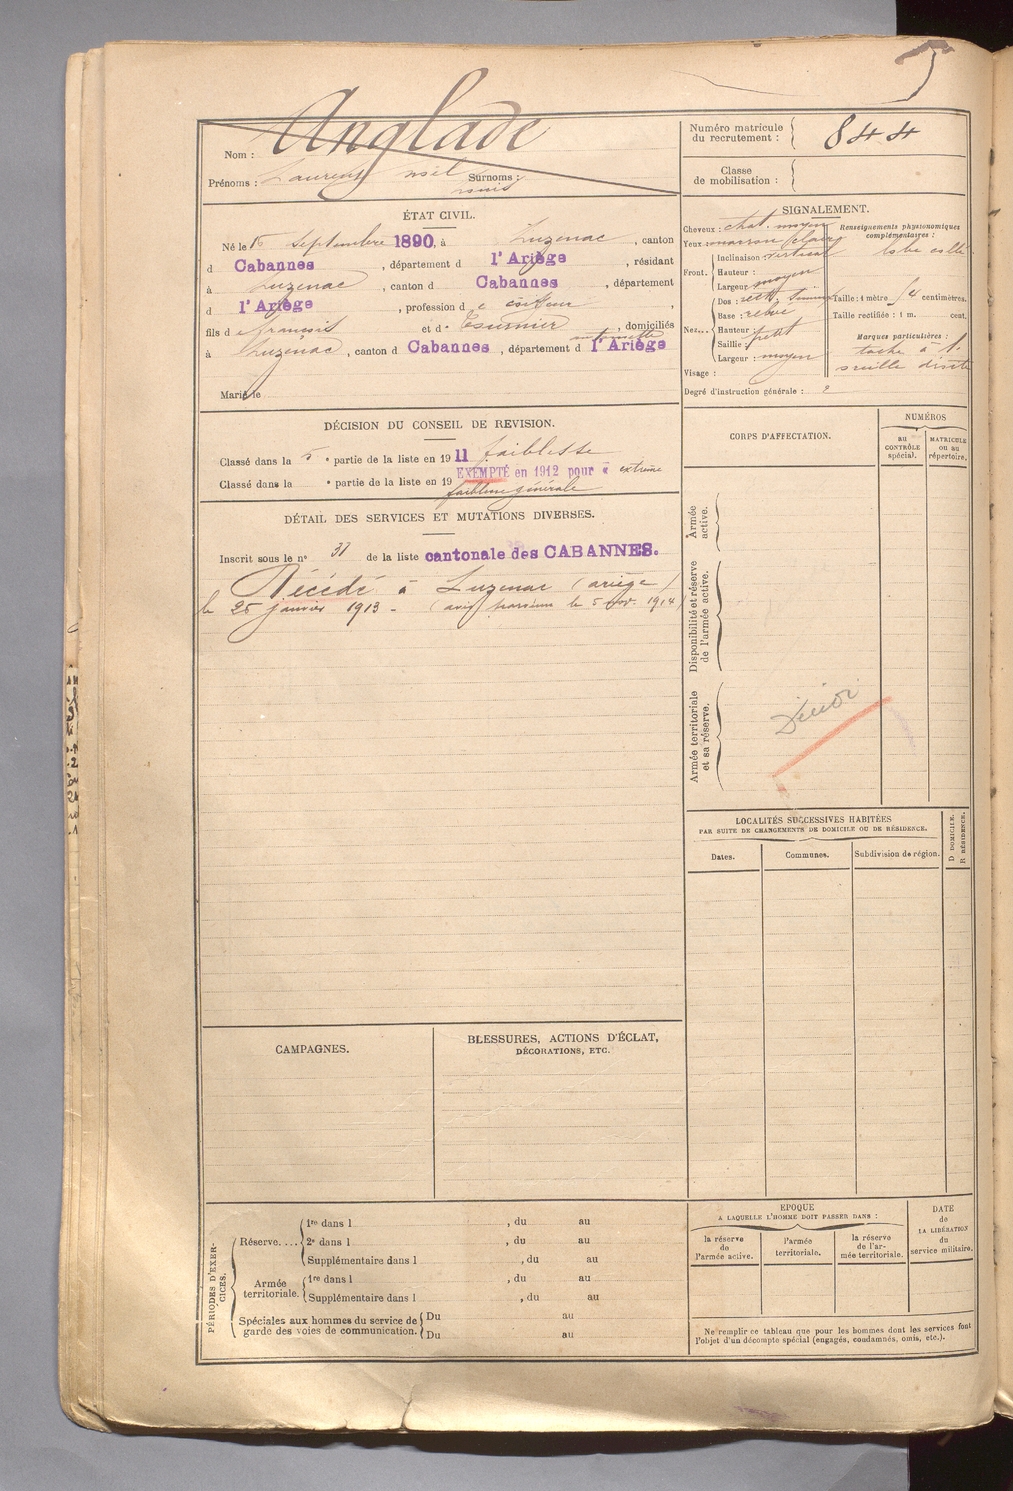 Anglade
Nom :
Numéro matricule
du recrutement :
844
Prénoms : Laurent noël Surnoms :
Classe
de mobilisation :
ÉTAT CIVIL.
Né le septembre 1890, à Luzenac, canton
d Cabannes, département d l'Ariège, résidant
à Luzenac, canton d Cabannes, département
d l'Ariège, profession d
fils de françois et d', domiciliés
à Luzenac, canton d Cabannes, département d l'Ariège
Marié le
SIGNALEMENT.
Cheveux : chat. moyen
Yeux : marron clair
Front.
Inclinaison : vertical
Hauteur :
Largeur : moyen
Nez...
Dos : rect.
Base : relevé
Hauteur :
Saillie : petit
Largeur : moyen
Visage :
Degré d'instruction générale : 2
Renseignements physionomiques
complémentaires :
lobe collé
Taille : 1 mètre centimètres.
Taille rectifiée : 1 m. cent.
Marques particulières :
tache à l'
oreille droite
DÉCISION DU CONSEIL DE REVISION.
Classé dans la 5 e partie de la liste en 1911 faiblesse
Classé dans la e partie de la liste en 19 EXEMPTÉ en 1912 pour « extrême
faiblesse générale
DÉTAIL DES SERVICES ET MUTATIONS DIVERSES.
Inscrit sous le n° de la liste cantonale des CABANNES.
Décédé à Luzenac (ariège)
le 25 janvier 1913 - (avis le 5 nov. 1914)
CORPS D'AFFECTATION.
NUMÉROS
au
CONTRÔLE
spécial.
MATRICULE
ou au
répertoire.
Armée
active.
Disponibilité et réserve
de l'armée active.
Armée territoriale
et sa réserve.
LOCALITÉS SUCCESSIVES HABITÉES
PAR SUITE DE CHANGEMENTS DE DOMICILE OU DE RÉSIDENCE.
Dates.
Communes.
Subdivision de région.
D DOMICILE.
R RÉSIDENCE.
CAMPAGNES.
BLESSURES, ACTIONS D'ÉCLAT,
DÉCORATIONS, ETC.
PÉRIODES D'EXER-
CICES.
Réserve....
1re dans l , du au
2e dans l , du au
Supplémentaire dans l , du au
Armée
territoriale.
1re dans l , du au
Supplémentaire dans l , du au
Spéciales aux hommes du service de
garde des voies de communication.
Du au
Du au
EPOQUE
A LAQUELLE L'HOMME DOIT PASSER DANS :
la réserve
de
l'armée active.
l'armée
territoriale.
la réserve
de l'ar-
mée territoriale.
DATE
de
LA LIBÉRATION
du
service militaire.
Ne remplir ce tableau que pour les hommes dont les services font
l'objet d'un décompte spécial (engagés, condamnés, omis, etc.).